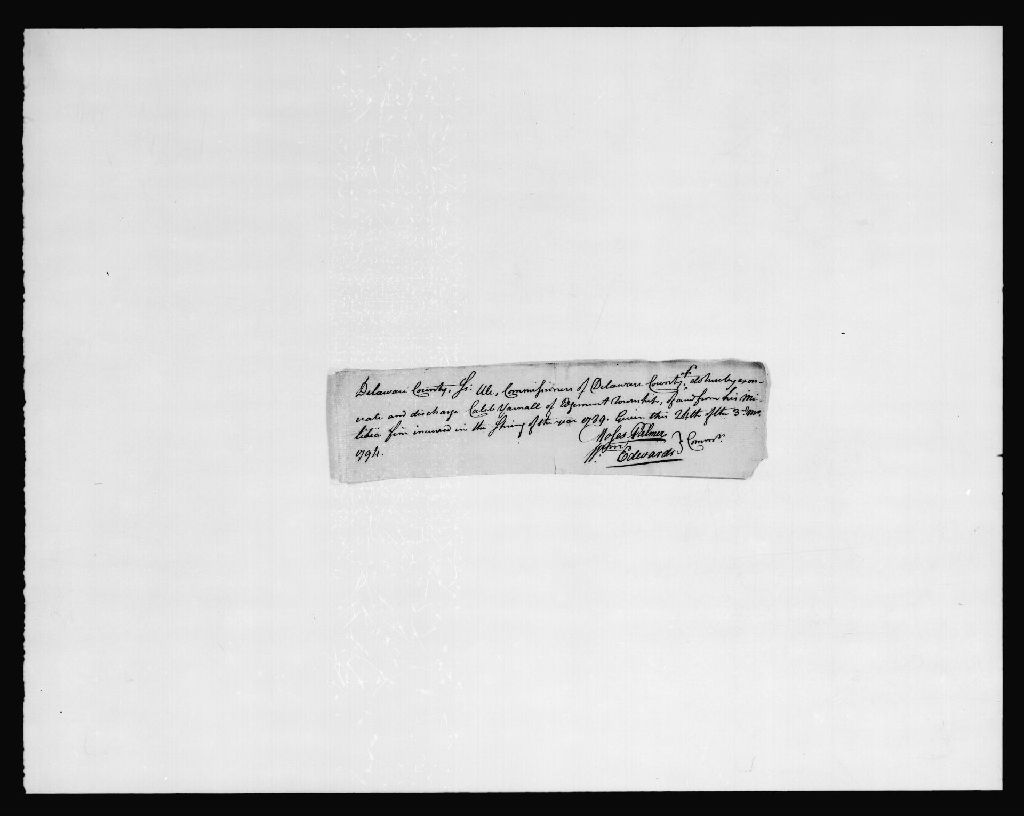 Delaware County, Ss: We, Commissioners of Delaware County, do hereby exon-
erate and discharge Caleb Yarnall of Edgmont Township, of and from his Mi-
litia fine incurred in the Spring of the year 1789. Given this 24th of the 3d. mo.
1794.
Moses Palmer
Wm. Edwards } Commrs.